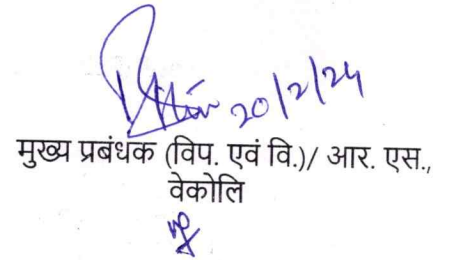 20/2/24
मुख्य प्रबंधक (विप. एवं वि.)/ आर. एस.,
वेकोलि